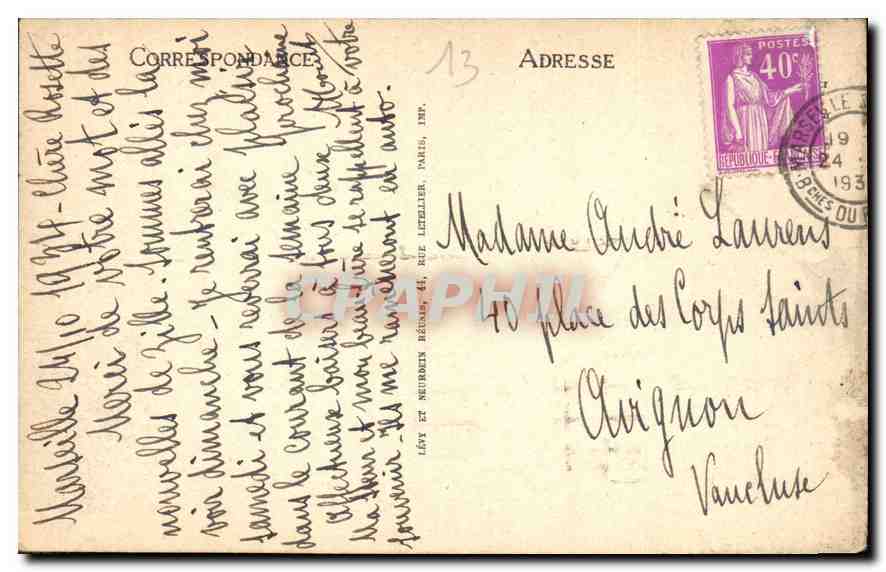 CORRESPONDANCE
Marseille 24/10 1934 - Chère Rosette
Merci de votre mot et des
nouvelles de Zille. Sommes allés la
voir dimanche - Je rentrerai chez moi
samedi et vous reverrai avec plaisir
dans le courant de la semaine prochaine
affectueux baisers à tous deux
Ma sœur et mon beau-frère se rappellent à votre
souvenir - Ils me ramèneront en auto.
LÉVY ET NEURDEIN RÉUNIS, 44, RUE LETELLIER, PARIS, IMP.
13
ADRESSE
POSTES
40c
RÉPUBLIQUE FRANÇAISE
MARSEILLE
19
24
193
Bches DU R
Madame André Laurens
40 place des Corps Saints
Avignon
Vaucluse
CPAPHIL